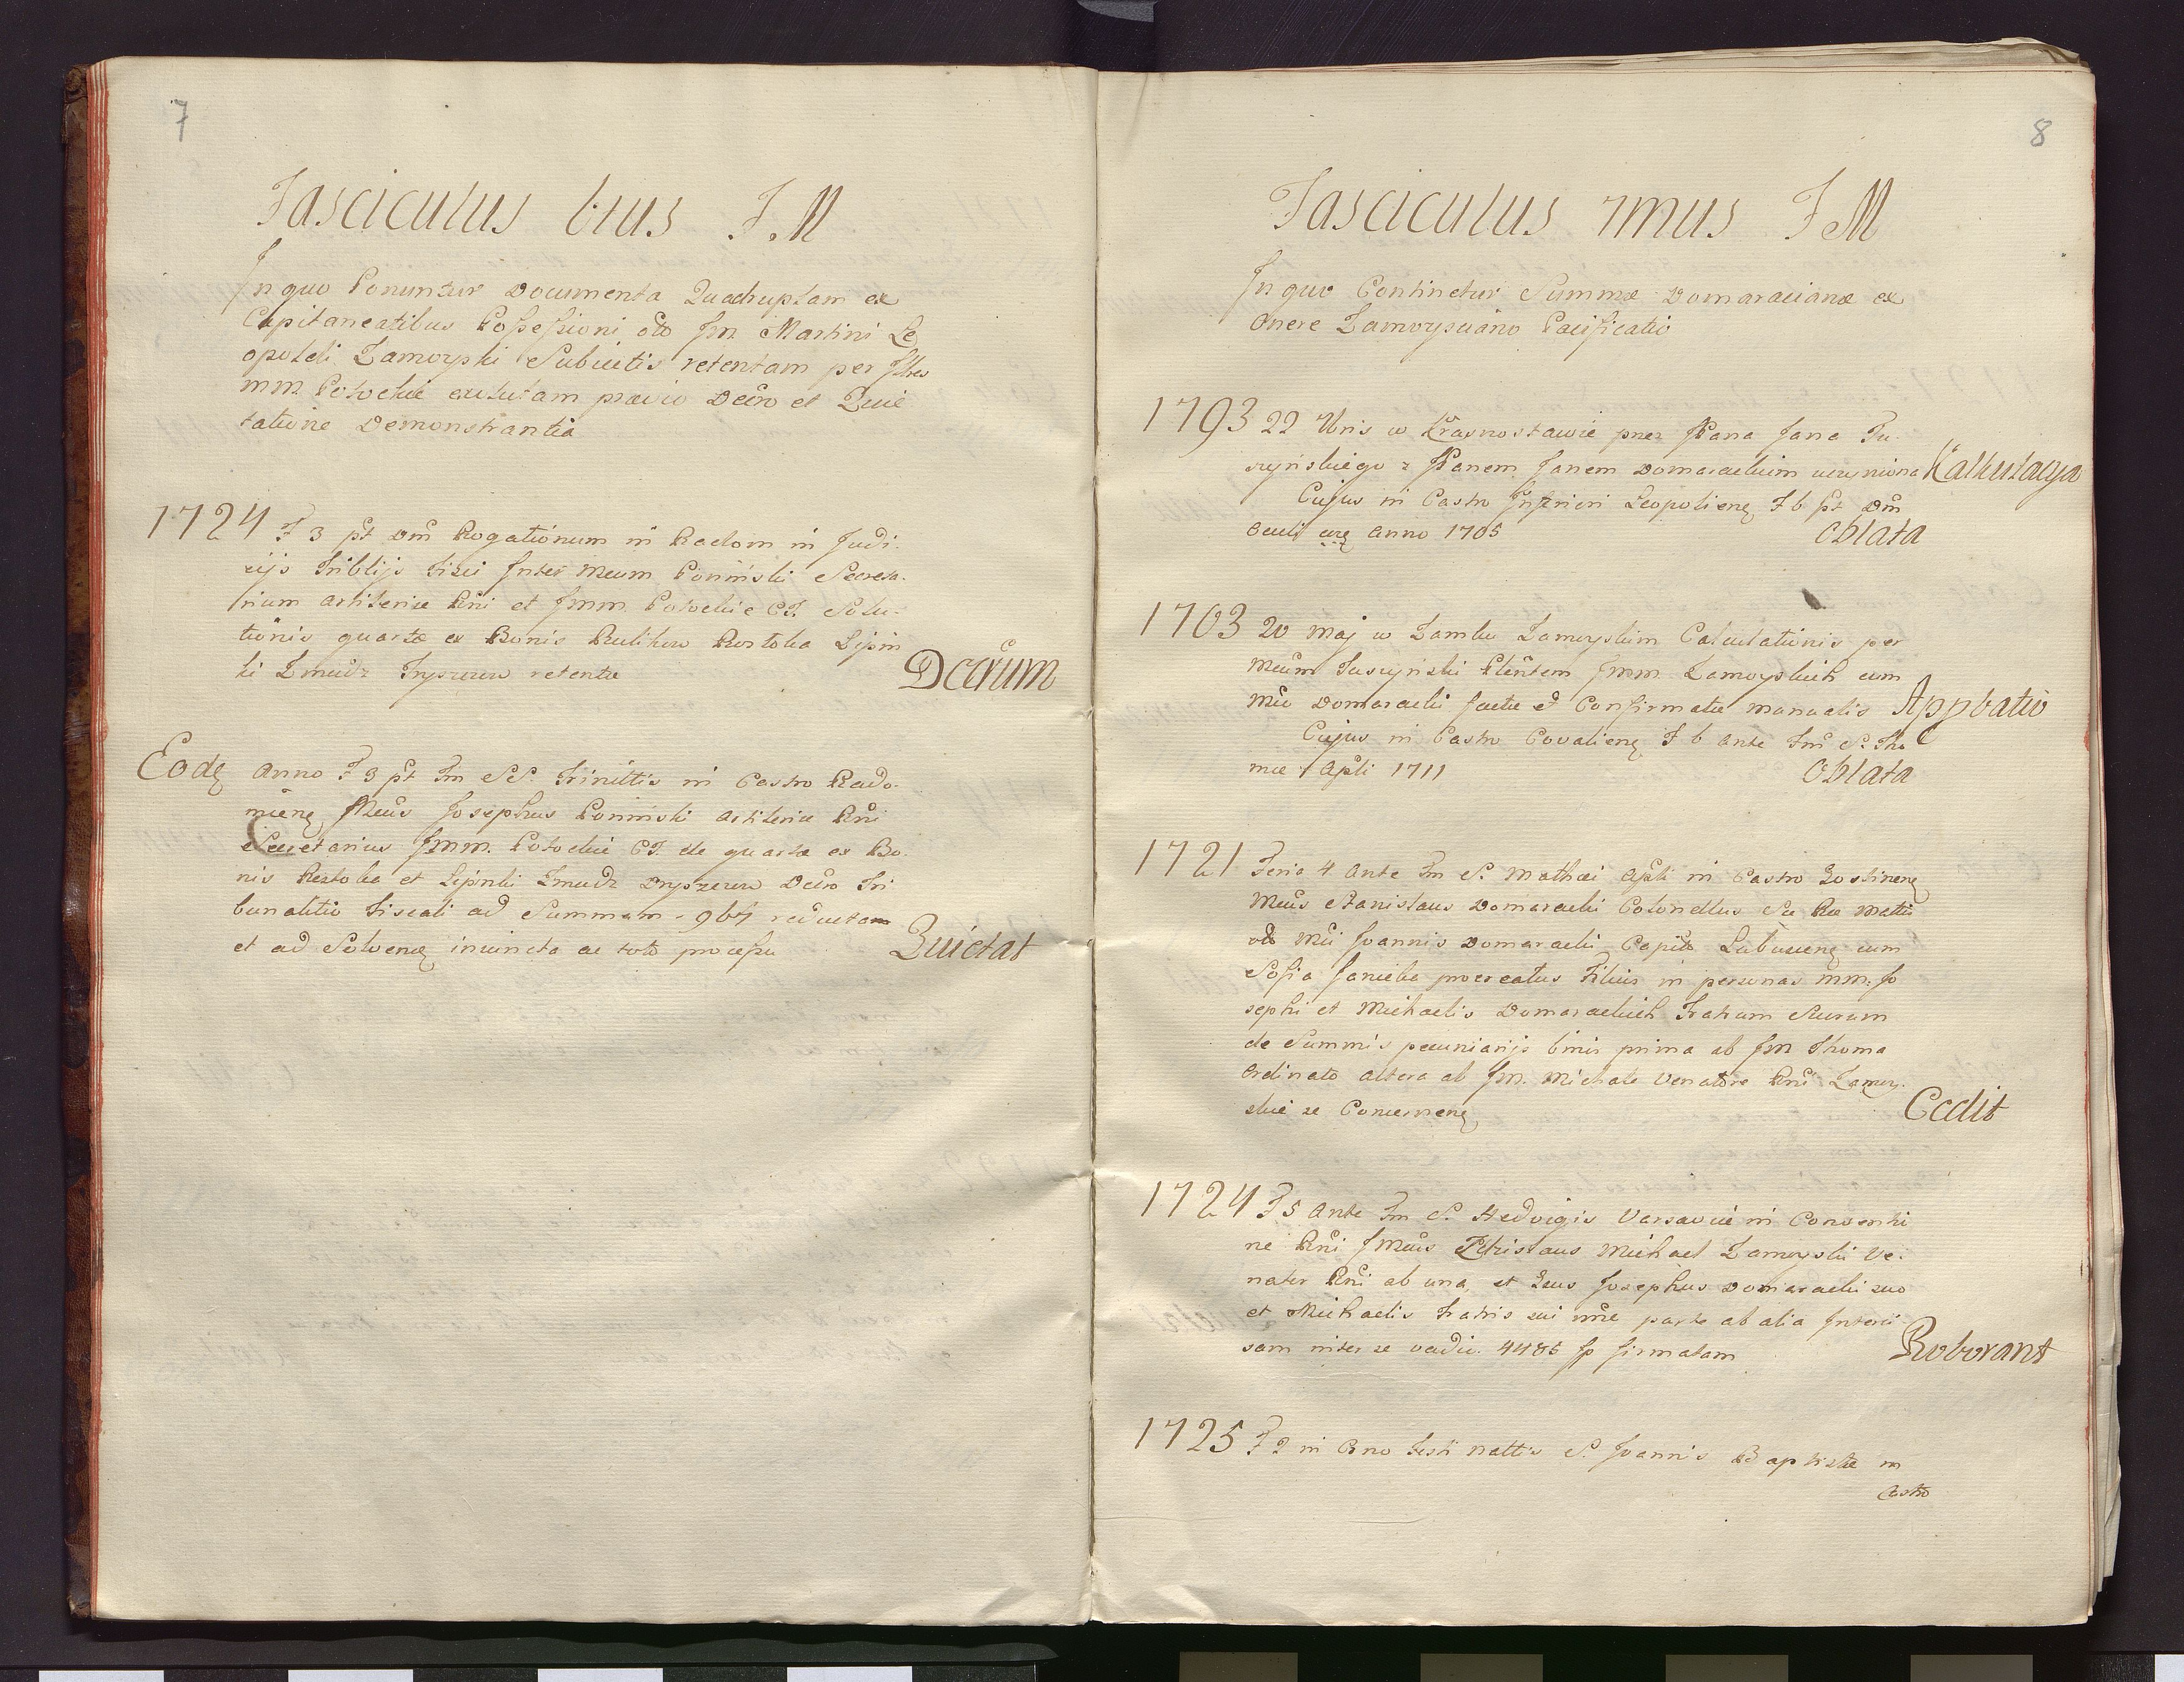 7
Fasciculus 6tus F. M
In quo Ponuntur Documenta Quadruplam ex
Capitaneatibus Possessioni olo Jm Martini Le
opoldi Zamoyski Subiectis retentam per Illres
mm Potockie exolutam prævio Decro et Quie
tatione Demonstrantia
1724 F 3 pt Dm Rogationum in Radom in Judi
cijs Triblijs Fisci Inter Mcum Poninski Secreta-
rium Artileriæ Rni et Jmm Potockie CT. Solu-
tionis quartæ ex Bonis Rulikow Rostoka Lipin
ki Zmudz Tryszczew retentæ Decrum
Eode Anno F 3 pt Fm SS. Trinittis in Castro Rado-
miene Mcus Josephus Poninski Artileriæ Rni
Secretarius Jmm. Potockie CT. de quarta ex Bo
nis Rostoka et Lipinki Zmudz Dryszczew Decro Tri
bunalitio Fiscali ad Summam 967 reductam
et ad Solvene invincta ac toto processu Quietat
8
Fasciculus 7mus F M
In quo Continetur Summæ Domaracianæ ex
Onere Zamoysciano Pacificatio
1793 22 Xbris w Krasnostawie przez JPana Jana Tu-
szyńskiego z JPanem Janem Domarackim uczyniona Kalkulacya
Cujus in Castro Inferiori Leopoliene F 6 pt Dm
Oculi Anno 1705 Oblata
1703 20 Maj w Zamku Zamoyskim Calculationis per
Mcum Tuszyński Plentem Jmm Zamoyskich cum
Mco Domaracki factæ et Confirmatæ manualis Appbatio
Cujus in Castro Covaliene F 6 ante Fm S. Tho
mæ Apli 1711 Oblata
1721 Feria 4 Ante Fm S. Mathæi Apli in Castro Gostinene
Mcus Stanislaus Domaracki Colonellus Sæ Ræ Mattis
olo Mci Joannis Domaracki Capit Labuscene cum
Sofia Janicka procreatus Filius in personas mm: Jo
sephi et Michaelis Domarackich Fratrum Suorum
de Summis pecuniarijs binis prima ab Jm Thoma
Ordinato altera ab Jm. Michale Venatore Rni Zamoy-
skie se Concernene Cedit
1724 F 5 Ante Fm S. Hedvigis Varsaviæ in Conventi
ne Rni JMcus Zdzislaus Michael Zamoyski Ve-
nator Rni ab una, et Gsus Josephus Domaracki suo
et Michaelis Fratris sui nne parte ab alia Interci
sam inter se vadio 4486 fp firmatam Roborant
1725 F 2 in Cno Festi Nattis S. Joannis Baptistæ in
Castro